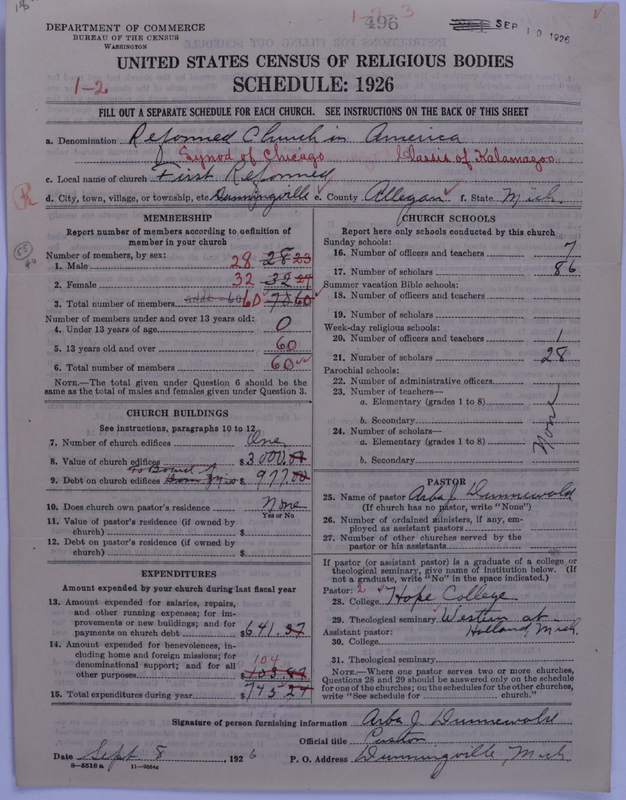 1-2 3
496
SEP 10 1926
DEPARTMENT OF COMMERCE
BUREAU OF THE CENSUS
WASHINGTON
UNITED STATES CENSUS OF RELIGIOUS BODIES
SCHEDULE: 1926
1-2
FILL OUT A SEPARATE SCHEDULE FOR EACH CHURCH. SEE INSTRUCTIONS ON THE BACK OF THIS SHEET
a. Denomination Reformed Church in America
Synod of Chicago Classis of Kalamazoo
c. Local name of church First Reformed
d. City, town, village, or township, etc. Dunningville e. County Allegan f. State Mich.
MEMBERSHIP
Report number of members according to definition of
member in your church
Number of members, by sex:
1. Male 28 28 23
2. Female 32 32 27
3. Total number of members 60 70 60
Number of members under and over 13 years old:
4. Under 13 years of age 0
5. 13 years old and over 60
6. Total number of members 60
NOTE.—The total given under Question 6 should be the
same as the total of males and females given under Question 3.
CHURCH BUILDINGS
See instructions, paragraphs 10 to 12
7. Number of church edifices One
8. Value of church edifices $3,000.00
9. Debt on church edifices $977.00
10. Does church own pastor's residence None
Yes or No
11. Value of pastor's residence (if owned by
church) $
12. Debt on pastor's residence (if owned by
church) $
EXPENDITURES
Amount expended by your church during last fiscal year
13. Amount expended for salaries, repairs,
and other running expenses; for im-
provements or new buildings; and for
payments on church debt $641.37
14. Amount expended for benevolences, in-
cluding home and foreign missions; for
denominational support; and for all
other purposes 104 $103.87
15. Total expenditures during year $745.24
CHURCH SCHOOLS
Report here only schools conducted by this church
Sunday schools:
16. Number of officers and teachers 7
17. Number of scholars 86
Summer vacation Bible schools:
18. Number of officers and teachers
19. Number of scholars
Week-day religious schools:
20. Number of officers and teachers 1
21. Number of scholars 28
Parochial schools:
22. Number of administrative officers
23. Number of teachers—
a. Elementary (grades 1 to 8)
b. Secondary
24. Number of scholars—
a. Elementary (grades 1 to 8)
b. Secondary
None
PASTOR
25. Name of pastor Arba J. Dunnewold
(If church has no pastor, write "None")
26. Number of ordained ministers, if any, em-
ployed as assistant pastors
27. Number of other churches served by the
pastor or his assistants
If pastor (or assistant pastor) is a graduate of a college or
theological seminary, give name of institution below. (If
not a graduate, write "No" in the space indicated.)
Pastor: 2
28. College Hope College
29. Theological seminary Western at
Holland, Mich.
Assistant pastor:
30. College
31. Theological seminary
NOTE.—Where one pastor serves two or more churches,
Questions 28 and 29 should be answered only on the schedule
for one of the churches; on the schedules for the other churches,
write "See schedule for church."
Signature of person furnishing information Arba J. Dunnewold
Official title Pastor
Date Sept 8, 1926 P. O. Address Dunningville, Mich
8—5518 a